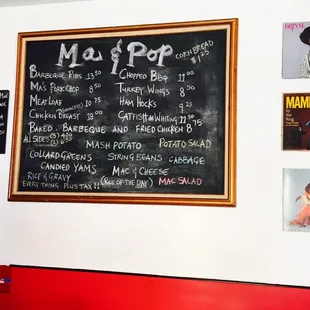 Ma & Pop
CORN BREAD
$1.25
BARBEQUE RIBS 13.50
MA'S PORK CHOP 8.50
MEAT LOAF 10.75
CHICKEN BREAST 12.00
CHOPPED BBQ 11.00
TURKEY WINGS 8.50
HAM HOCKS 9.25
CATFISH OR WHITING 11.50
BAKED, BARBEQUE AND FRIED CHICKEN 8.75
ALL SIDES
MASH POTATO POTATO SALAD
COLLARD GREENS STRING BEANS CABBAGE
CANDIED YAMS MAC & CHEESE
RICE & GRAVY (RICE OF THE DAY) MAC SALAD
EVERY THING PLUS TAX
DIONNE
MAMB
by the King